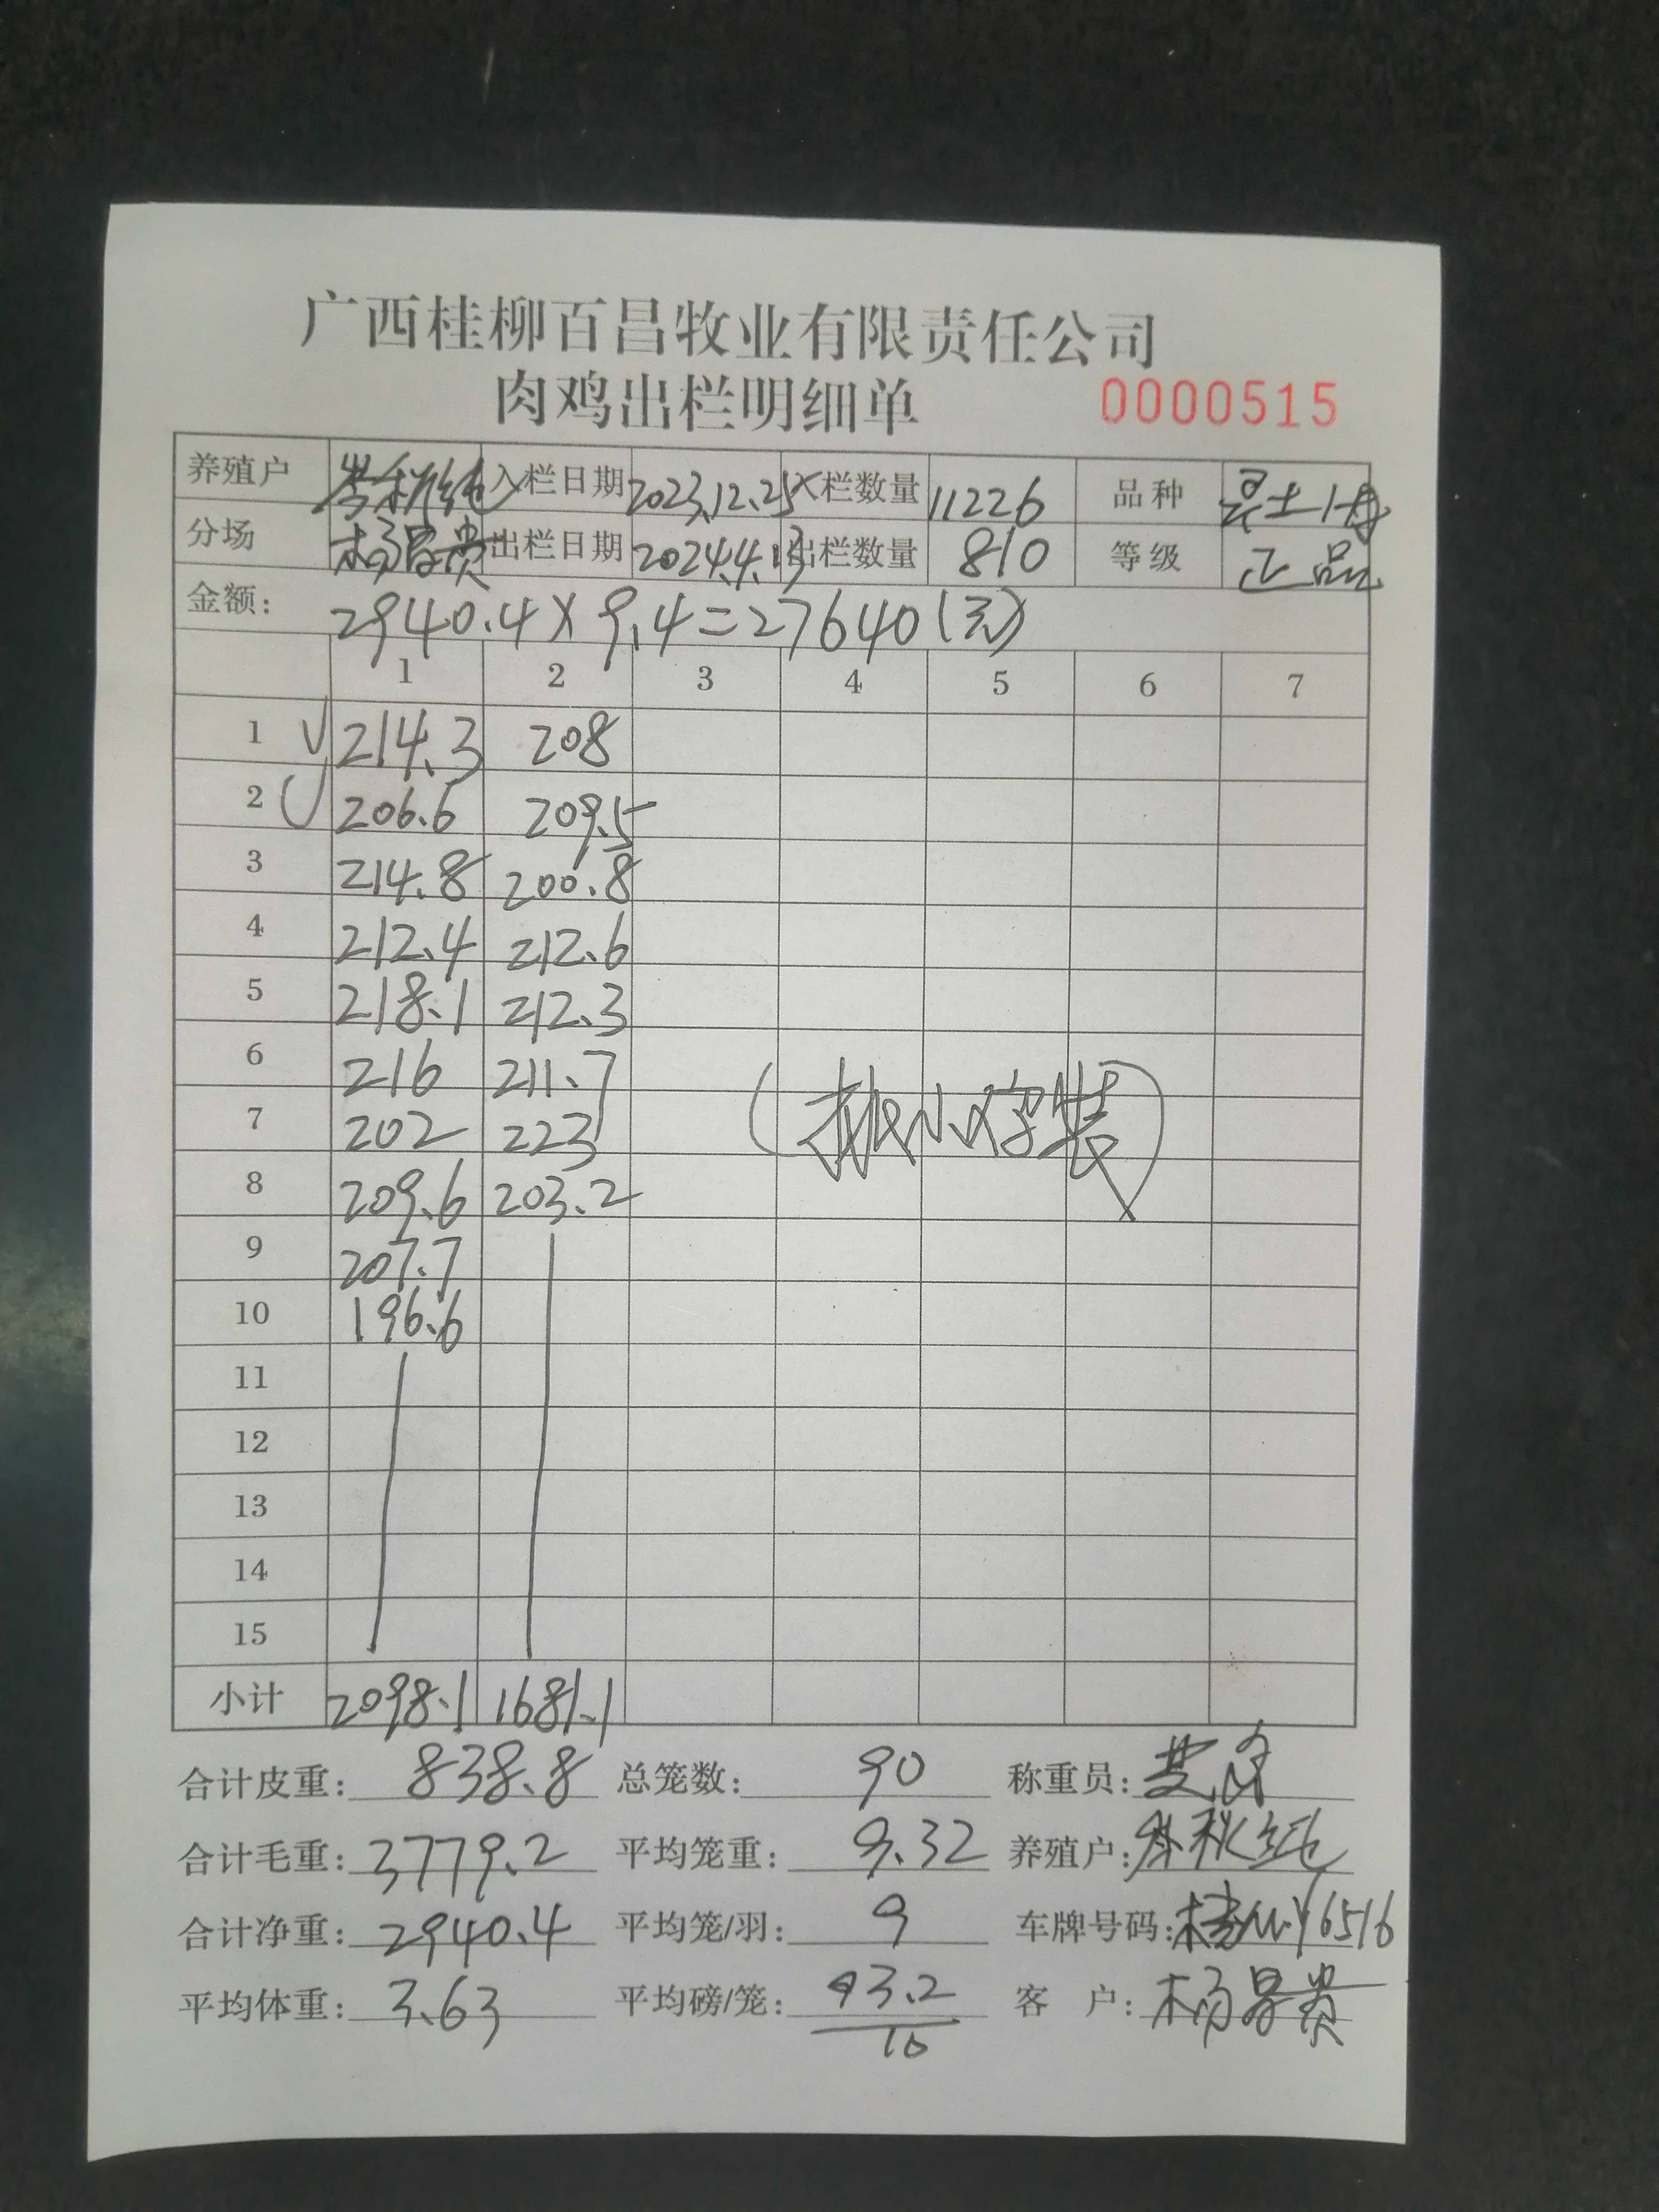 广西桂柳百昌牧业有限责任公司
肉鸡出栏明细单 0000515
养殖户 入栏日期 2023.12.25 入栏数量 11226 品种
分场 杨昌贵 出栏日期 2024.4.13 出栏数量 810 等级 正品
金额: 2940.4×9.4=27640(元)
1 2 3 4 5 6 7
1 214.3 208
2 206.6 209.5
3 214.8 200.8
4 212.4 212.6
5 218.1 212.3
6 216 211.7
7 202 223
8 209.6 203.2
9 207.7
10 196.6
11
12
13
14
15
小计 2098.1 1681.1
合计皮重: 838.8 总笼数: 90 称重员:
合计毛重: 3779.2 平均笼重: 9.32 养殖户:
合计净重: 2940.4 平均笼/羽: 9 车牌号码: Y6516
平均体重: 3.63 平均磅/笼: 93.2/10 客 户: 杨昌贵